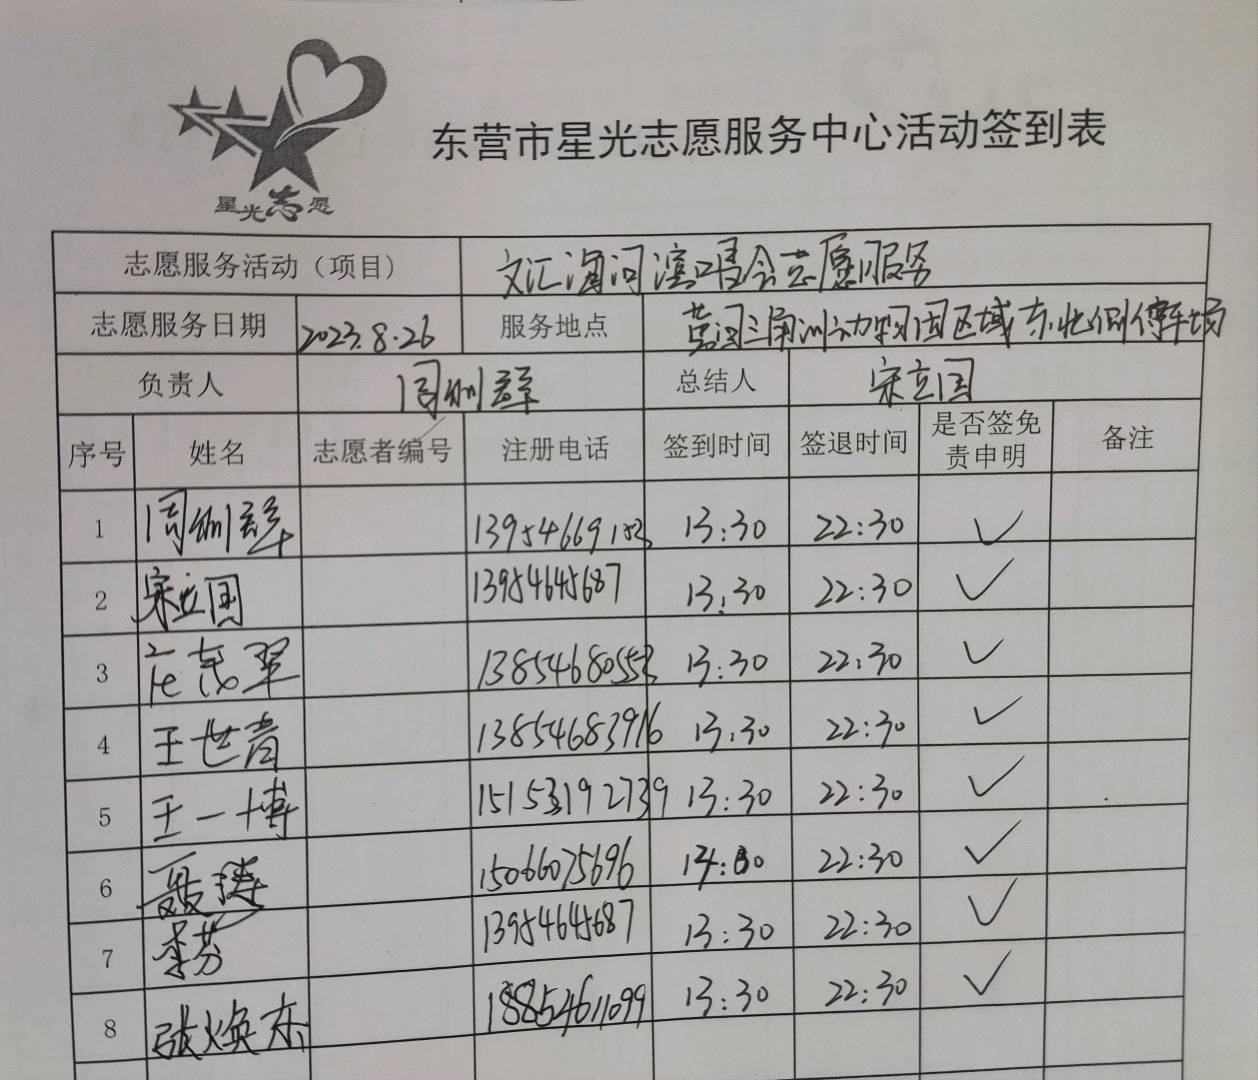 星光志愿
东营市星光志愿服务中心活动签到表
志愿服务活动（项目） 文汇海河演唱会志愿服务
志愿服务日期 2023.8.26 服务地点 黄河三角洲动物园区域东北侧停车场
负责人 周 群 总结人 宋立国
序号 姓名 志愿者编号 注册电话 签到时间 签退时间 是否签免责申明 备注
1 周 群 13:30 22:30 ✓
2 宋立国 13954645687 13:30 22:30 ✓
3 翠 13854680553 13:30 22:30 ✓
4 王世青 13854683916 13:30 22:30 ✓
5 王一博 15153192739 13:30 22:30 ✓
6 聂涛 15066075696 22:30 ✓
7 李芬 13954645687 13:30 22:30 ✓
8 张焕东 18854611099 13:30 22:30 ✓